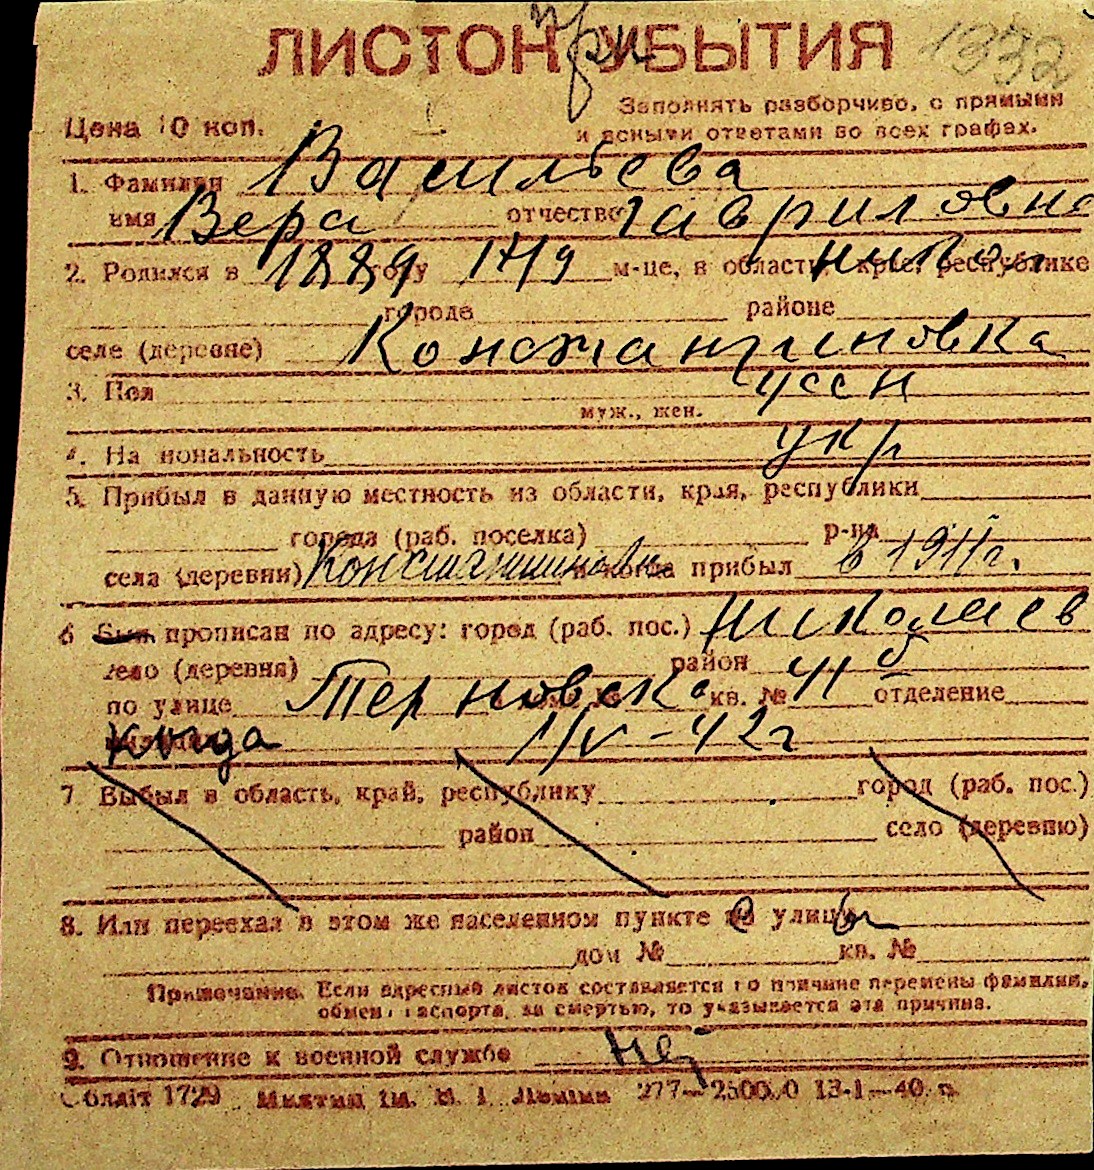 ЛИСТОК УБЫТИЯ при 1332
Цена 10 коп. Заполнять разборчиво, с прямыми
и ясными ответами во всех графах.
1. Фамилия Васильева
имя Вера отчество Гавриловна
2. Родился в 1889 году 17/9 м-це, в области, крае, республике Никол
городе районе
селе (деревне) Константиновка
3. Пол жен
муж., жен.
4. Национальность укр
5. Прибыл в данную местность из области, края, республики
города (раб. поселка) р-на
села (деревни) Константиновка и когда прибыл в 1911 г.
6 Был прописан по адресу: город (раб. пос.) Николаев
село (деревня) район
по улице Терновска дом № кв. № 41 б отделение
Когда 1/V-42 г
7 Выбыл в область, край, республику город (раб. пос.)
район село (деревню)
8. Или переехал в этом же населенном пункте на улицу
дом № кв. №
Примечание. Если адресный листок составляется по причине перемены фамилии,
обмена паспорта, за смертью, то указывается эта причина.
9. Отношение к военной службе Нет
Обллiт 1729 277—25000 13-1—40 р.